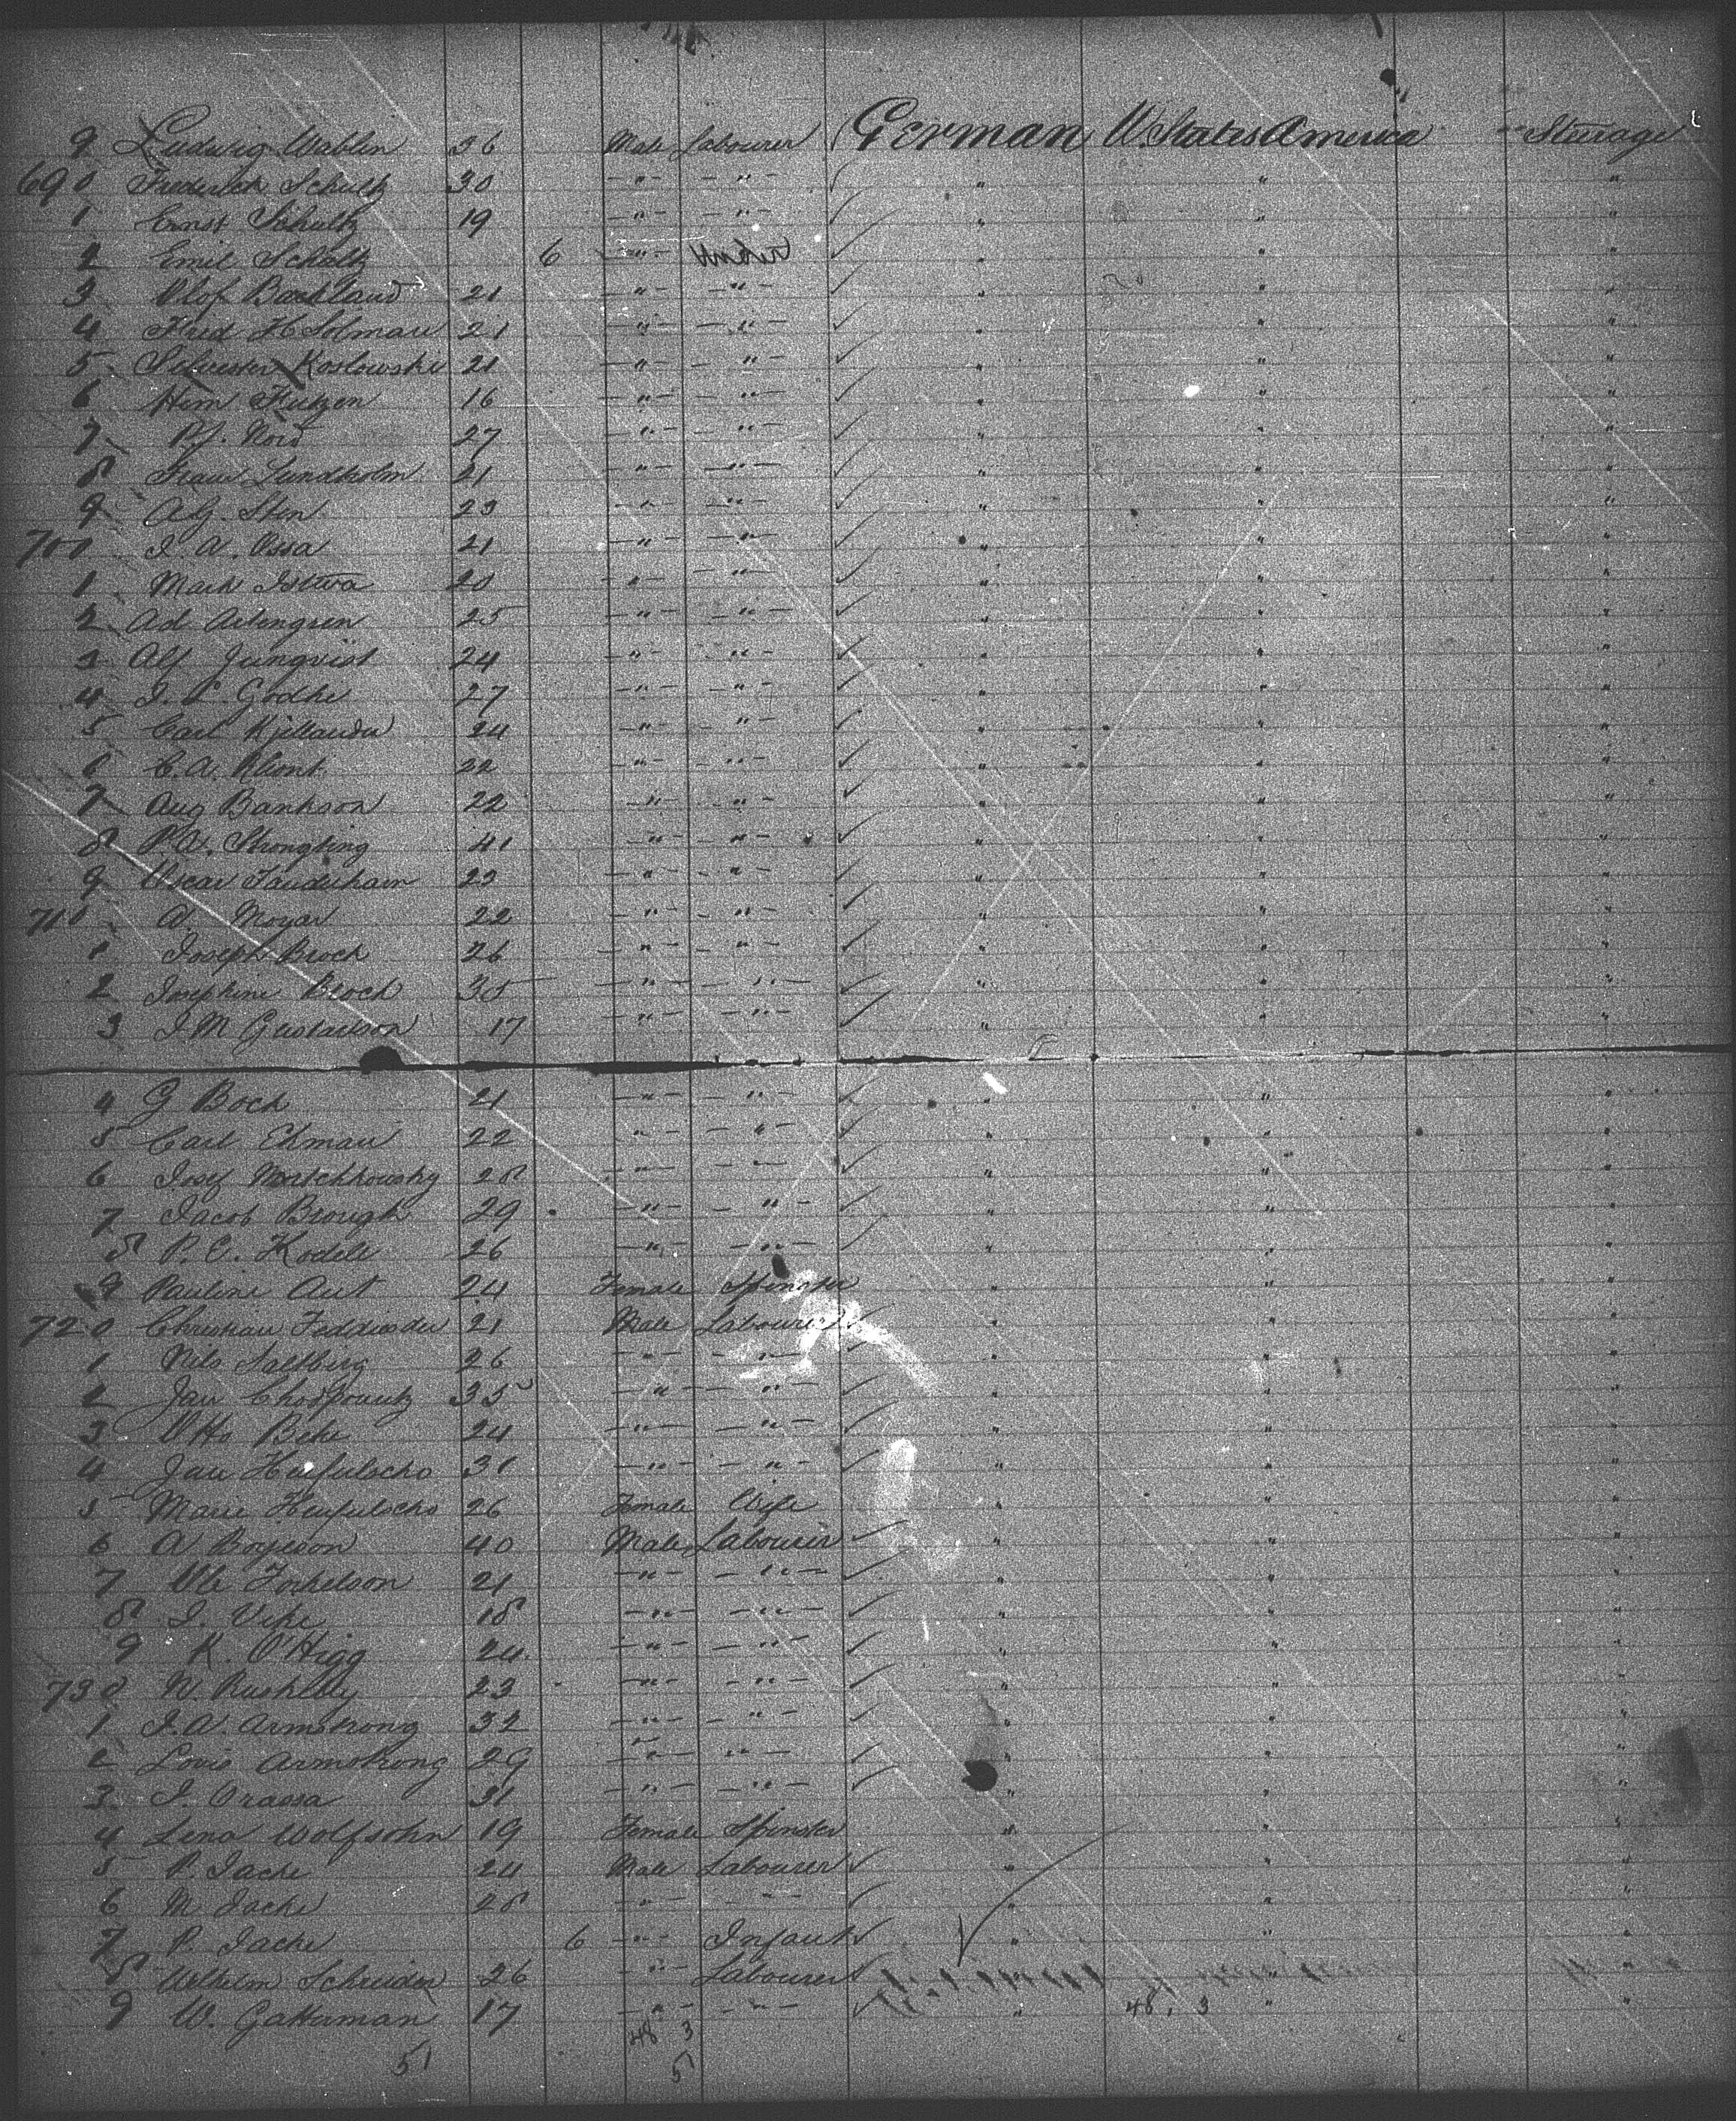 9 Ludwig Wahlin 36 Male Labourer German U. States America Steerage
690 Frederick Schultz 30 " " " " "
1 Ernst Schultz 19 " " " " "
2 Emil Schultz 6 " " " "
3 Olof Backland 21 " " " " "
4 Fred H Solman 21 " " " " "
5 Silvester Koslowski 21 " " " " "
6 Him 16 " " " " "
7 P.J. Nord 27 " " " " "
8 Lundholm 21 " " " " "
9 A.G. Sten 23 " " " " "
700 I. A. Ossa 21 " " " " "
1 Mark Istwa 20 " " " " "
2 Ad 25 " " " " "
3 Alf Jungvist 24 " " " " "
4 I. L. Godke 27 " " " " "
5 Carl Kjellander 24 " " " " "
6 C. A. Klont 22 " " " " "
7 Aug Bankson 22 " " " " "
8 P. A. Strongling 41 " " " " "
9 Oscar 23 " " " " "
710 A. Moyar 22 " " " " "
1 Joseph Brock 26 " " " " "
2 Josephine Brock 35 " " " " "
3 I M Gustafson 17 " " " " "
4 G Bock 21 " " " " "
5 Carl Ekman 22 " " " " "
6 Josef 28 " " " " "
7 Jacob Brough 29 " " " " "
8 P. E. Kodell 26 " " " " "
9 Pauline Aut 24 Female Spinster " " "
720 Christian 21 Male Labourer " " "
1 Nils Saltberg 26 " " " " "
2 Jan 35 " " " " "
3 Otto Beke 24 " " " " "
4 Jan 31 " " " " "
5 Marie 26 Female Wife " " "
6 A Boyeson 40 Male Labourer " " "
7 Ole Torkelson 21 " " " " "
8 I. Vike 18 " " " " "
9 K. O'Higg 24 " " " " "
730 N. 23 " " " " "
1 I. A. Armstrong 32 " " " " "
2 Lovis Armstrong 29 " " " " "
3 I. Orassa 31 " " " " "
4 Lena Wolfsohn 19 Female Spinster " " "
5 P. Jacke 24 Male Labourer " " "
6 M Jacke 28 " " " " "
7 P. Jacke 6 " Infant " " "
8 Wilhelm Schneider 26 " Labourer " "
9 W. Gatterman 17 " " " 48. 3 " "
48 3
51 51